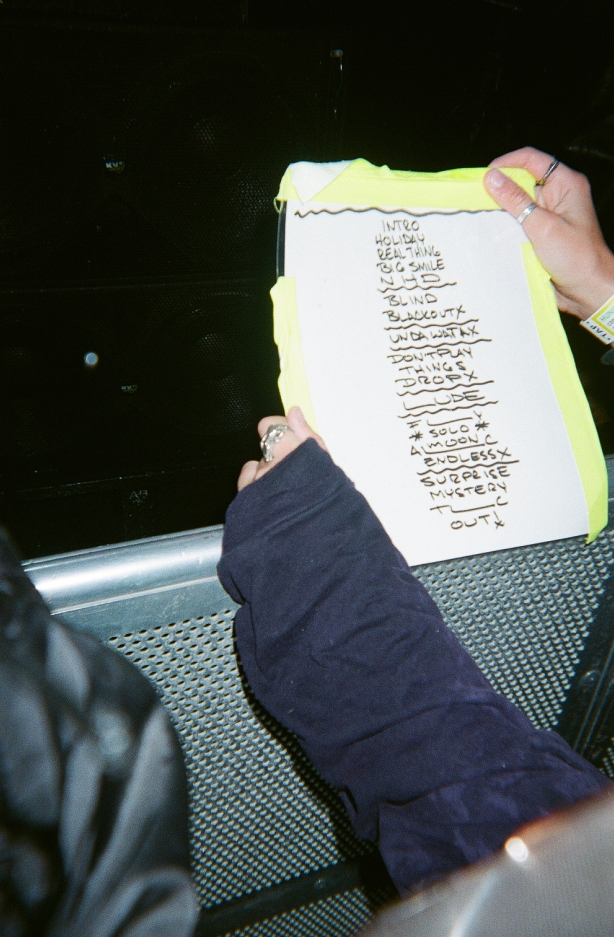 INTRO
HOLIDAY
REAL THING
BIG SMILE
N H D
BLIND
BLACKOUTX
UNDAWATAX
DON'T PLAY
THINGS
DROPX
LUDE
F___Y
* SOLO *
A MOON C
ENDLESSX
SURPRISE
MYSTERY
T___C
OUTX